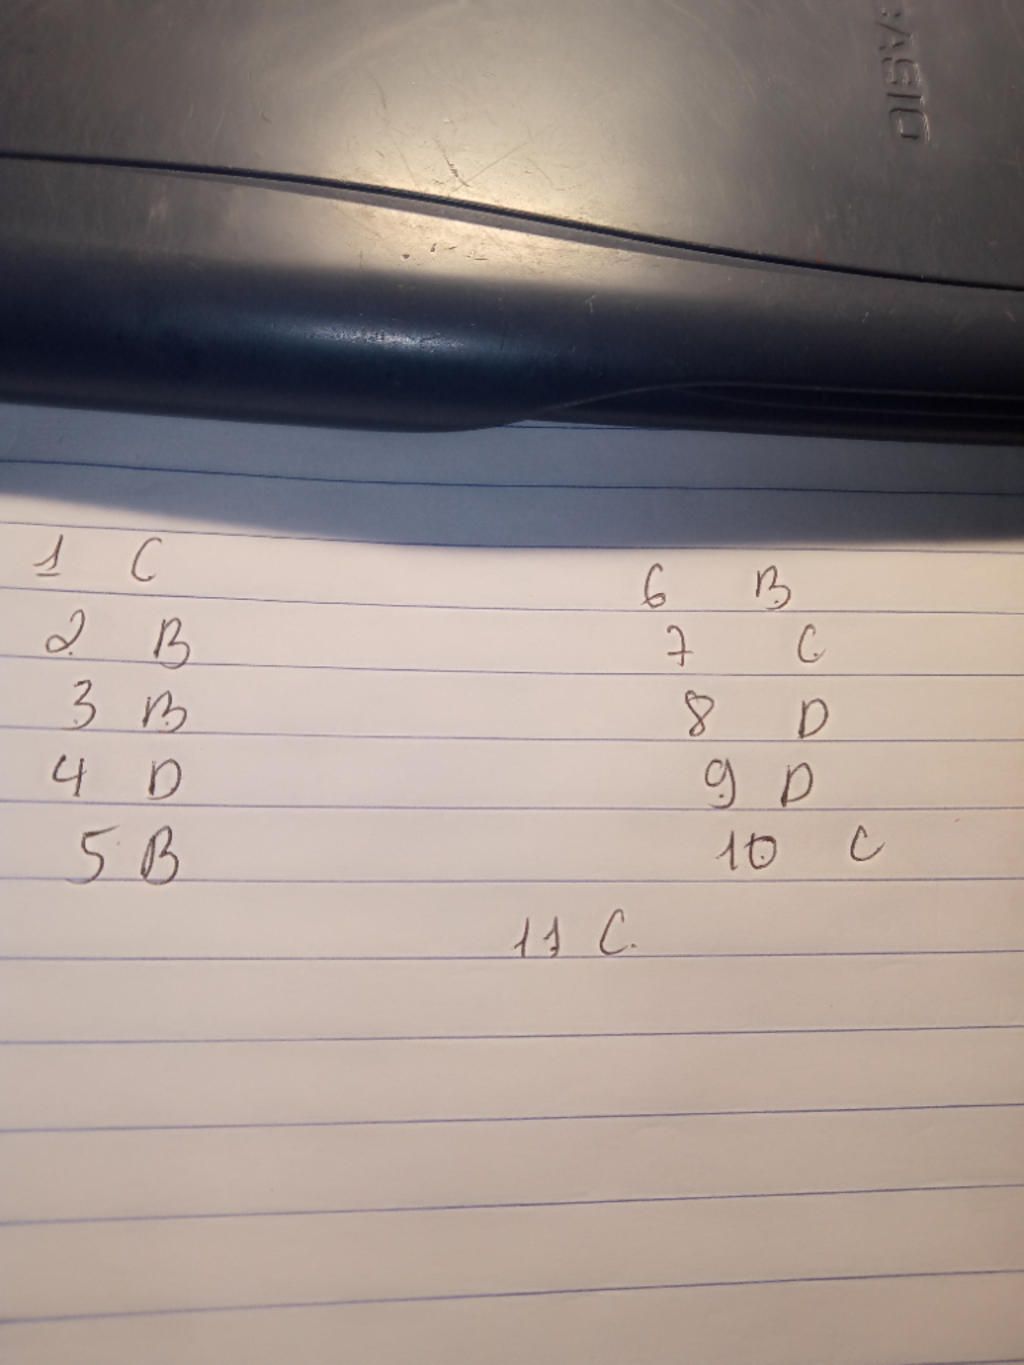 CASIO
1 C 6 B
2 B 7 C
3 B 8 D
4 D 9 D
5 B 10 C
11 C.